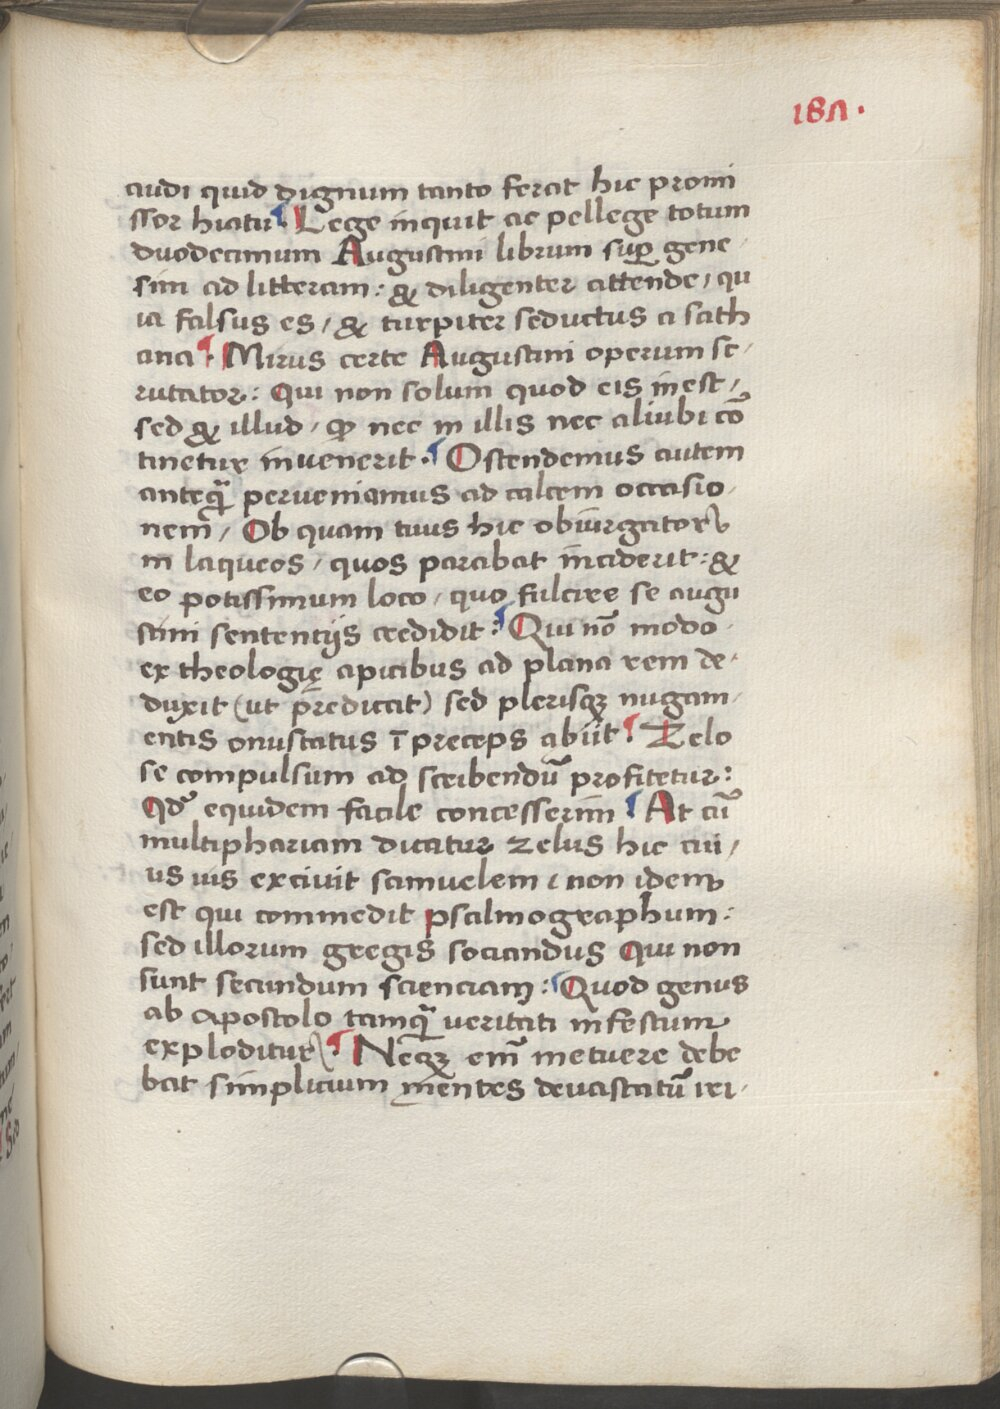 187.
audi quid dignum tanto ferat hic promi
ssor hiatu ¶ Lege inquit ac pellege totum
duodecimum Augustini librum sup̱ gene-
sim ad litteram: & diligenter attende, qu
ia falsus es, & turpiter seductus a sath
ana ¶ Mirus certe Augustini operum sc-
rutator: Qui non solum quod eis inest,
sed & illud, qꝫ nec in illis nec aliubi cō
tinetur invenerit. ¶ Ostendemus autem
anteq̃ perveniamus ad calcem occasio-
nem, Ob quam tuus hic obiurgator
in laqueos, quos parabat inciderit: &
eo potissimum loco, quo fulcire se augu
stini sententijs credidit: ¶ Qui nō modo
ex theologię apicibus ad plana rem de-
duxit (ut prędicat) sed plerisqꝫ nugam-
entis onustatus ī preceps abiit ¶ Zelo
se compulsum ad scribendū profitetur:
Qđ equidem facile concesserim ¶ At cū
multiphariam dicatur zelus hic cui,
us uis excivit samuelem, non idem
est qui commedit psalmographum:
sed illorum gregis sociandus Qui non
sunt secundum scienciam: ¶ Quod genus
ab apostolo tamq̃ veritati infestum
exploditur ¶ Neqꝫ em̄ metuere debe
bat simplicium mentes devastatū iri.